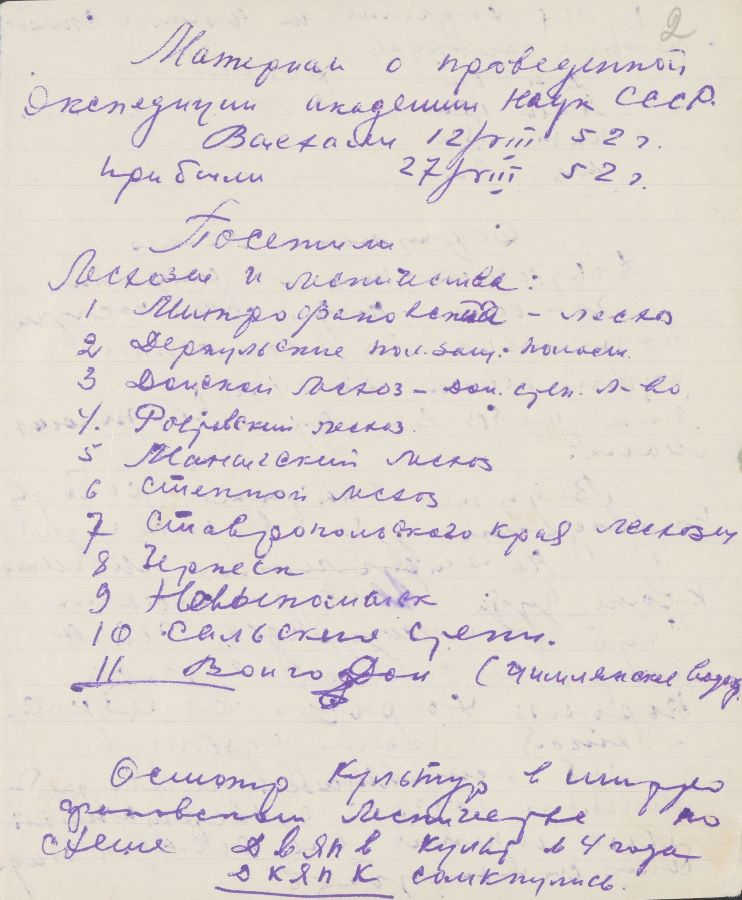 2
Материал о проведенной
экспедиции академии Наук СССР.
Выехали 12/VIII 52 г.
прибыли 27/VIII 52 г.
Посетили
Лесхозы и лесничества:
1 Митрофановский - лесхоз
2 Деркульские пол.защ. полосы.
3 Донской лесхоз - дон. суч. л-во.
4. Ростовский лесхоз.
5 Манычский лесхоз
6 Степной лесхоз
7 Ставропольского края лесхозы
8 Черкесск
9 Невыномыск
10 Сальские степи.
11 Волго Дон (Цимлянское водох.
Осмотр культур в митро
фановском лесничестве по
схеме Д В Яп В культ в 4 года
Д К Яп К сомкнулись.